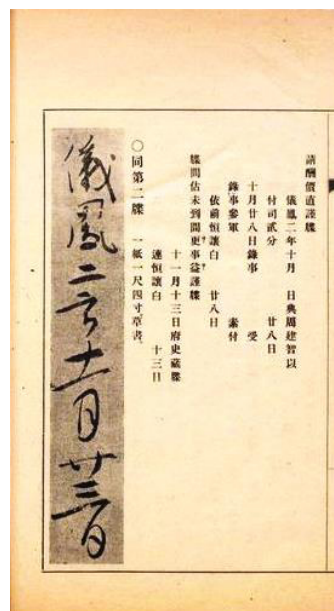 請酬價直謹牒
儀鳳二年十月　日典周建智以
付司貳分　　廿八日
十月廿八日錄事　　受
錄事參軍　　素付
依前恒讓白　廿八日
牒問估未到聞更事益謹牒
十一月十三日府史藏牒
連恒讓白　　十三日
〇同第二牒　一紙一尺四寸草書、
儀鳳二年十一月廿三日